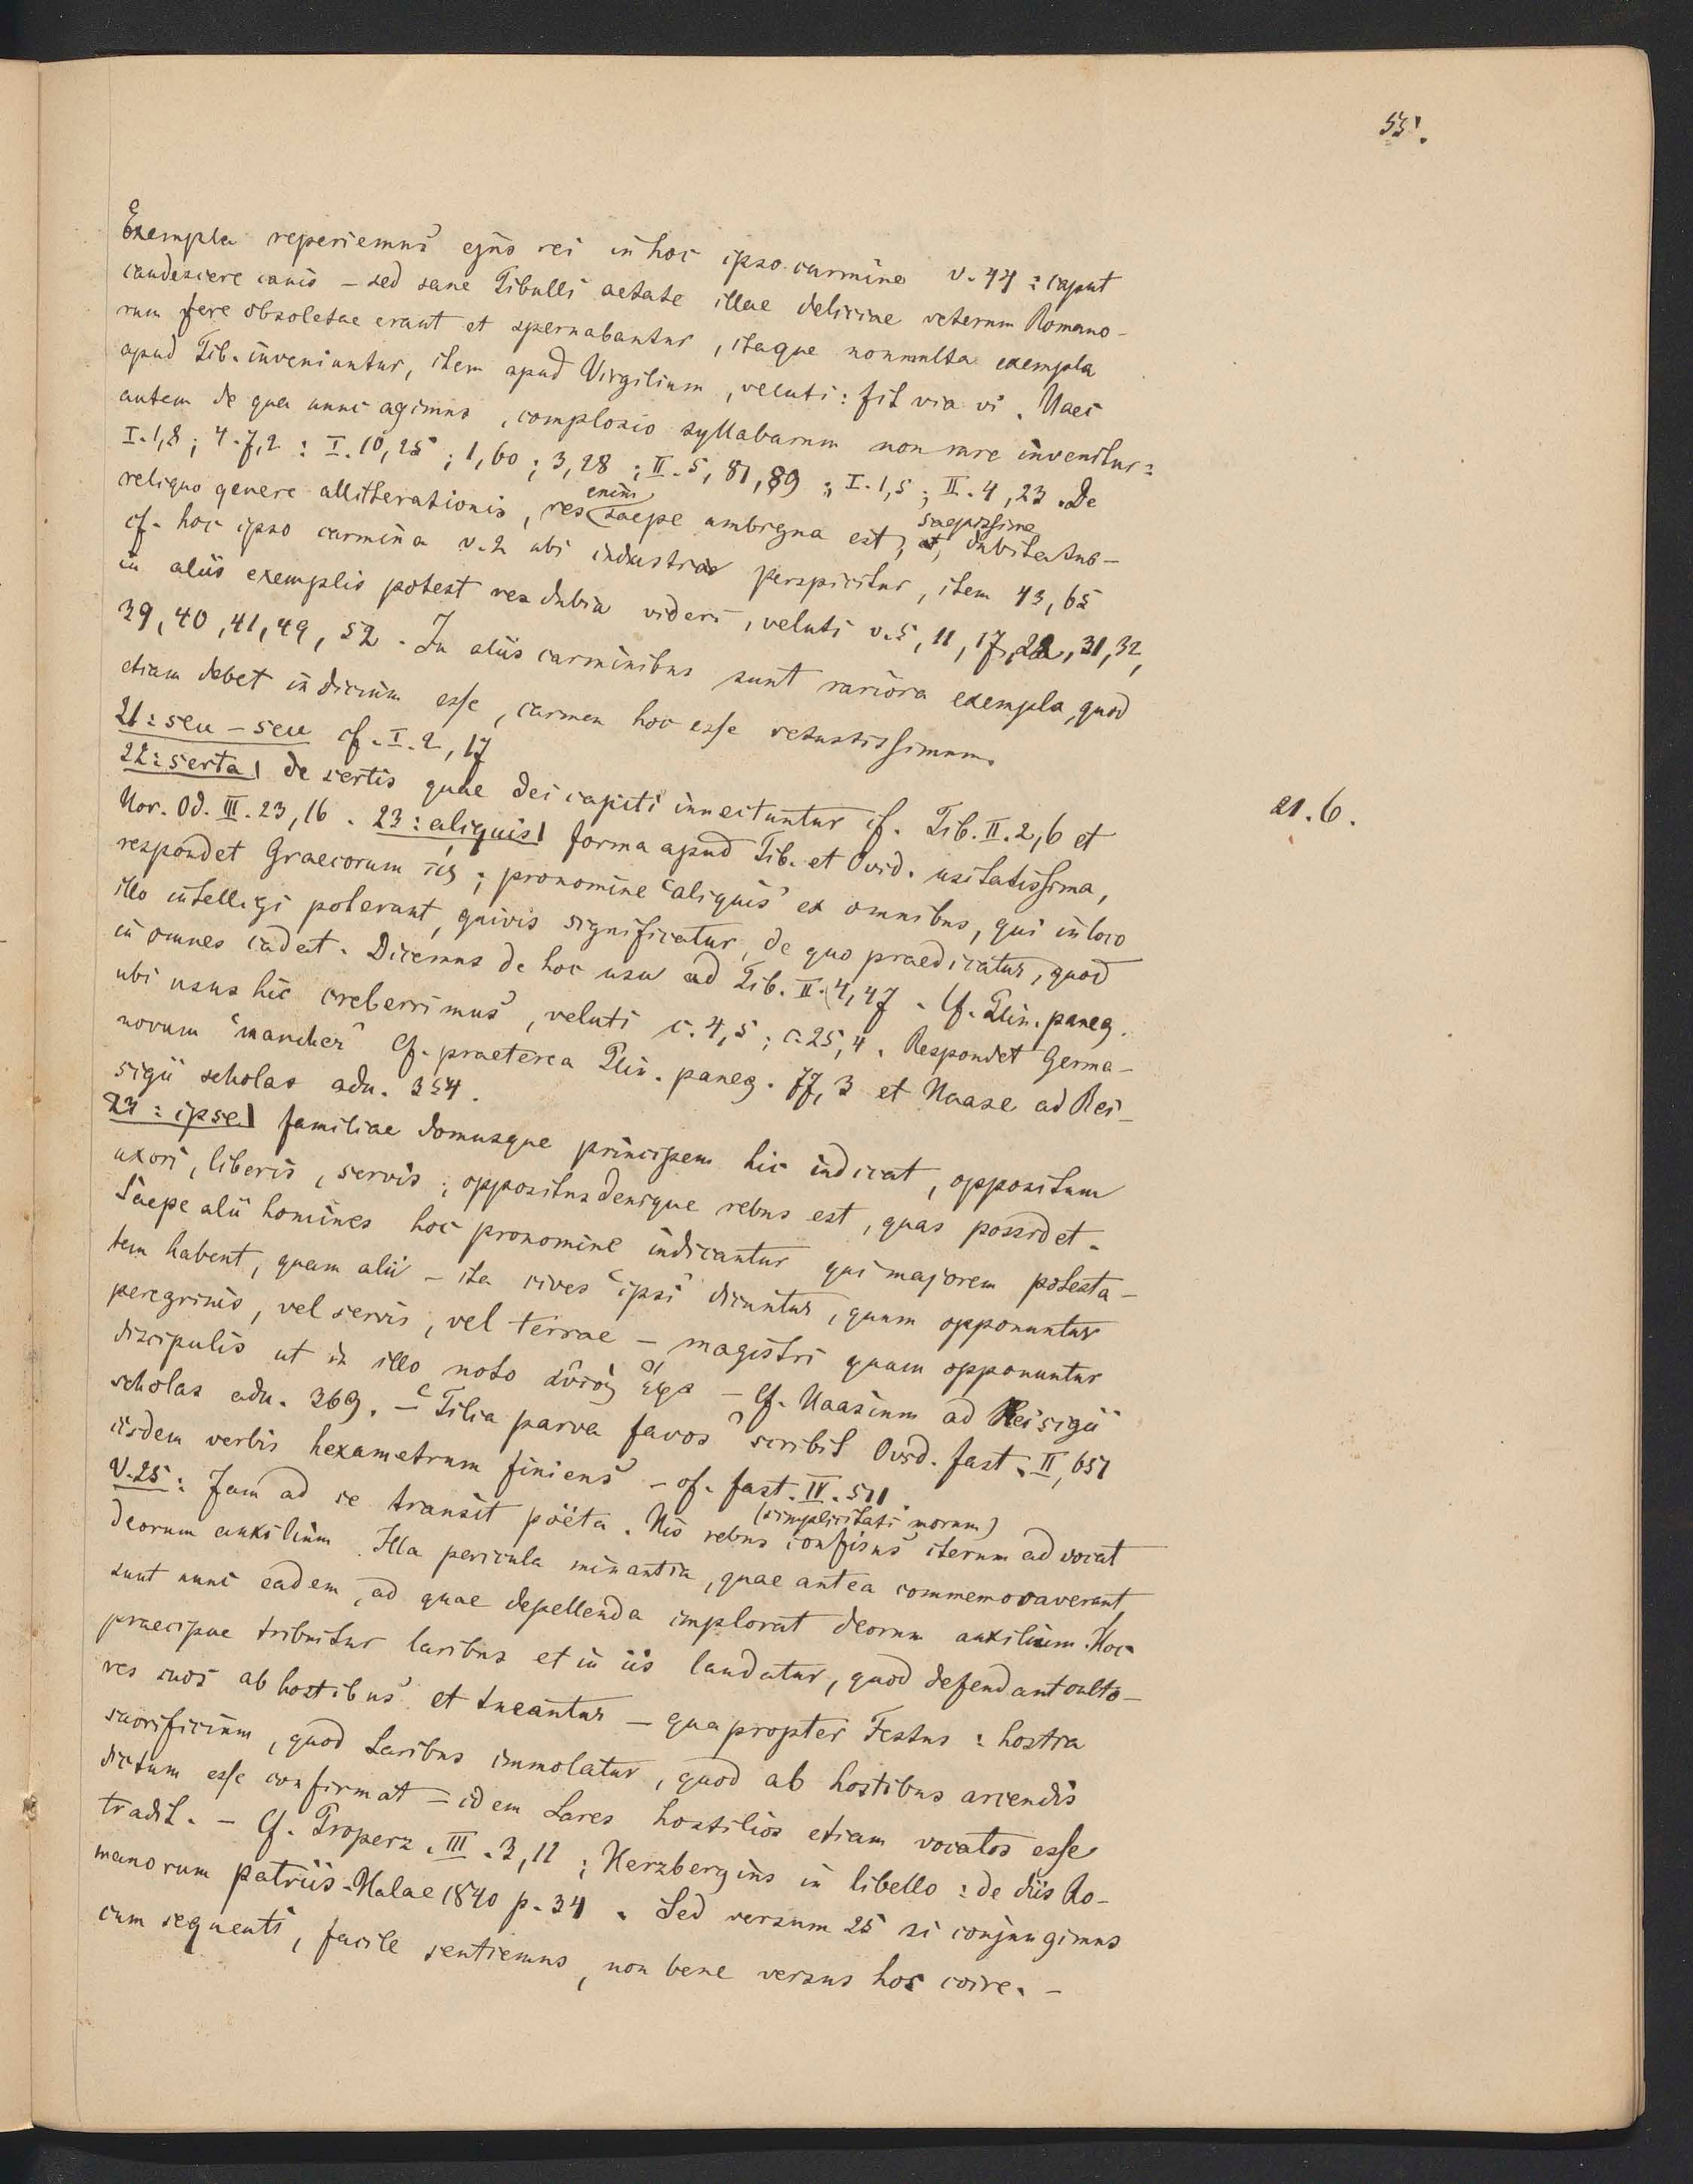 55.
Exempla reperiemus ejus rei in hoc ipso carmine v. 44 : caput
candescere canis – sed sane Tibulli aetate illae deliciae veterum Romano-
rum fere obsoletae erant et spernabantur, itaque non multa exempla
apud Tib. inveniuntur, item apud Virgilium, veluti : fit via vi. Haec
autem de qua nunc agimus, complosio syllabarum non rare invenitur :
I. 1,8 ; 4. 7,2 : I. 10,25 ; 1,60 ; 3,28 ; II. 5, 81, 89 ; I. 1,5 ; II. 4, 23. De
reliquo genere allitterationis, res enim saepe ambigua est, et saepissime dubitatur –
cf. hoc ipso carmina v. 2 ubi industria perspicitur, item 43, 65
in aliis exemplis potest res dubia videri, veluti v. 5, 11, 17, 22, 31, 32,
39, 40, 41, 49, 52. In aliis carminibus sunt rariora exempla, quod
etiam debet indicium esse, carmen hoc esse vetustissimum.
21 : seu – seu cf. I. 2, 17
22 : serta | de sertis quae dei capiti innectuntur cf. Tib. II. 2, 6 et
21. 6.
Hor. Od. III. 23, 16. 23 : aliquis | forma apud Tib. et Ovid. usitatissima,
respondet Graecorum τίς ; pronomine "aliquis" ex omnibus, qui in loco
illo intellegi poterant, quivis significatur, de quo praedicatur, quod
in omnes cadat. Dicemus de hoc usu ad Tib. II. 4, 47. Cf. Plin. paneg.
ubi usus hic creberrimus, veluti c. 4, 5 ; c. 25, 4. Respondet Germa-
norum "mancher" Cf. praeterea Plin. paneg. 77, 3 et Haase ad Rei-
sigii scholas adn. 354.
23 : ipse | familiae domusque principem hic indicat, oppositum
uxori, liberis, servis ; oppositus denique rebus est, quas possidet.
Saepe alii homines hoc pronomine indicantur qui majorem potesta-
tem habent, quam alii – ita cives "ipsi" dicuntur, quum opponuntur
peregrinis, vel servis, vel terrae – magistri quum opponuntur
discipulis ut in illo noto αὐτὸς ἔφα – Cf. Haasium ad Reisigii
scholas adn. 369. – "Tilia parva favos" scribit Ovid. fast. II, 651
iisdem verbis hexametrum finiens – cf. fast. IV. 511.
V. 25 : Jam ad se transit poëta. His rebus (simplicitati morum) confisus iterum advocat
deorum auxilium. Illa pericula minantia, quae antea commemoraverant,
sunt nunc eadem, ad quae depellenda implorat deorum auxilium. Hoc
praecipue tribuitur laribus et in iis laudatur, quod defendant culto-
res suos ab hostibus et tueantur – quapropter Festus : hostia
sacrificium, quod Laribus immolatur, quod ab hostibus arcendis
dictum esse confirmat – idem Lares hostilios etiam vocatos esse
tradit. – Cf. Properz. III. 3, 11 ; Herzbergius in libello : de diis Ro-
manorum patriis. Halae 1840 p. 34. Sed versum 25 si conjungimus
cum sequenti, facile sentiemus, non bene versus hos coire. –